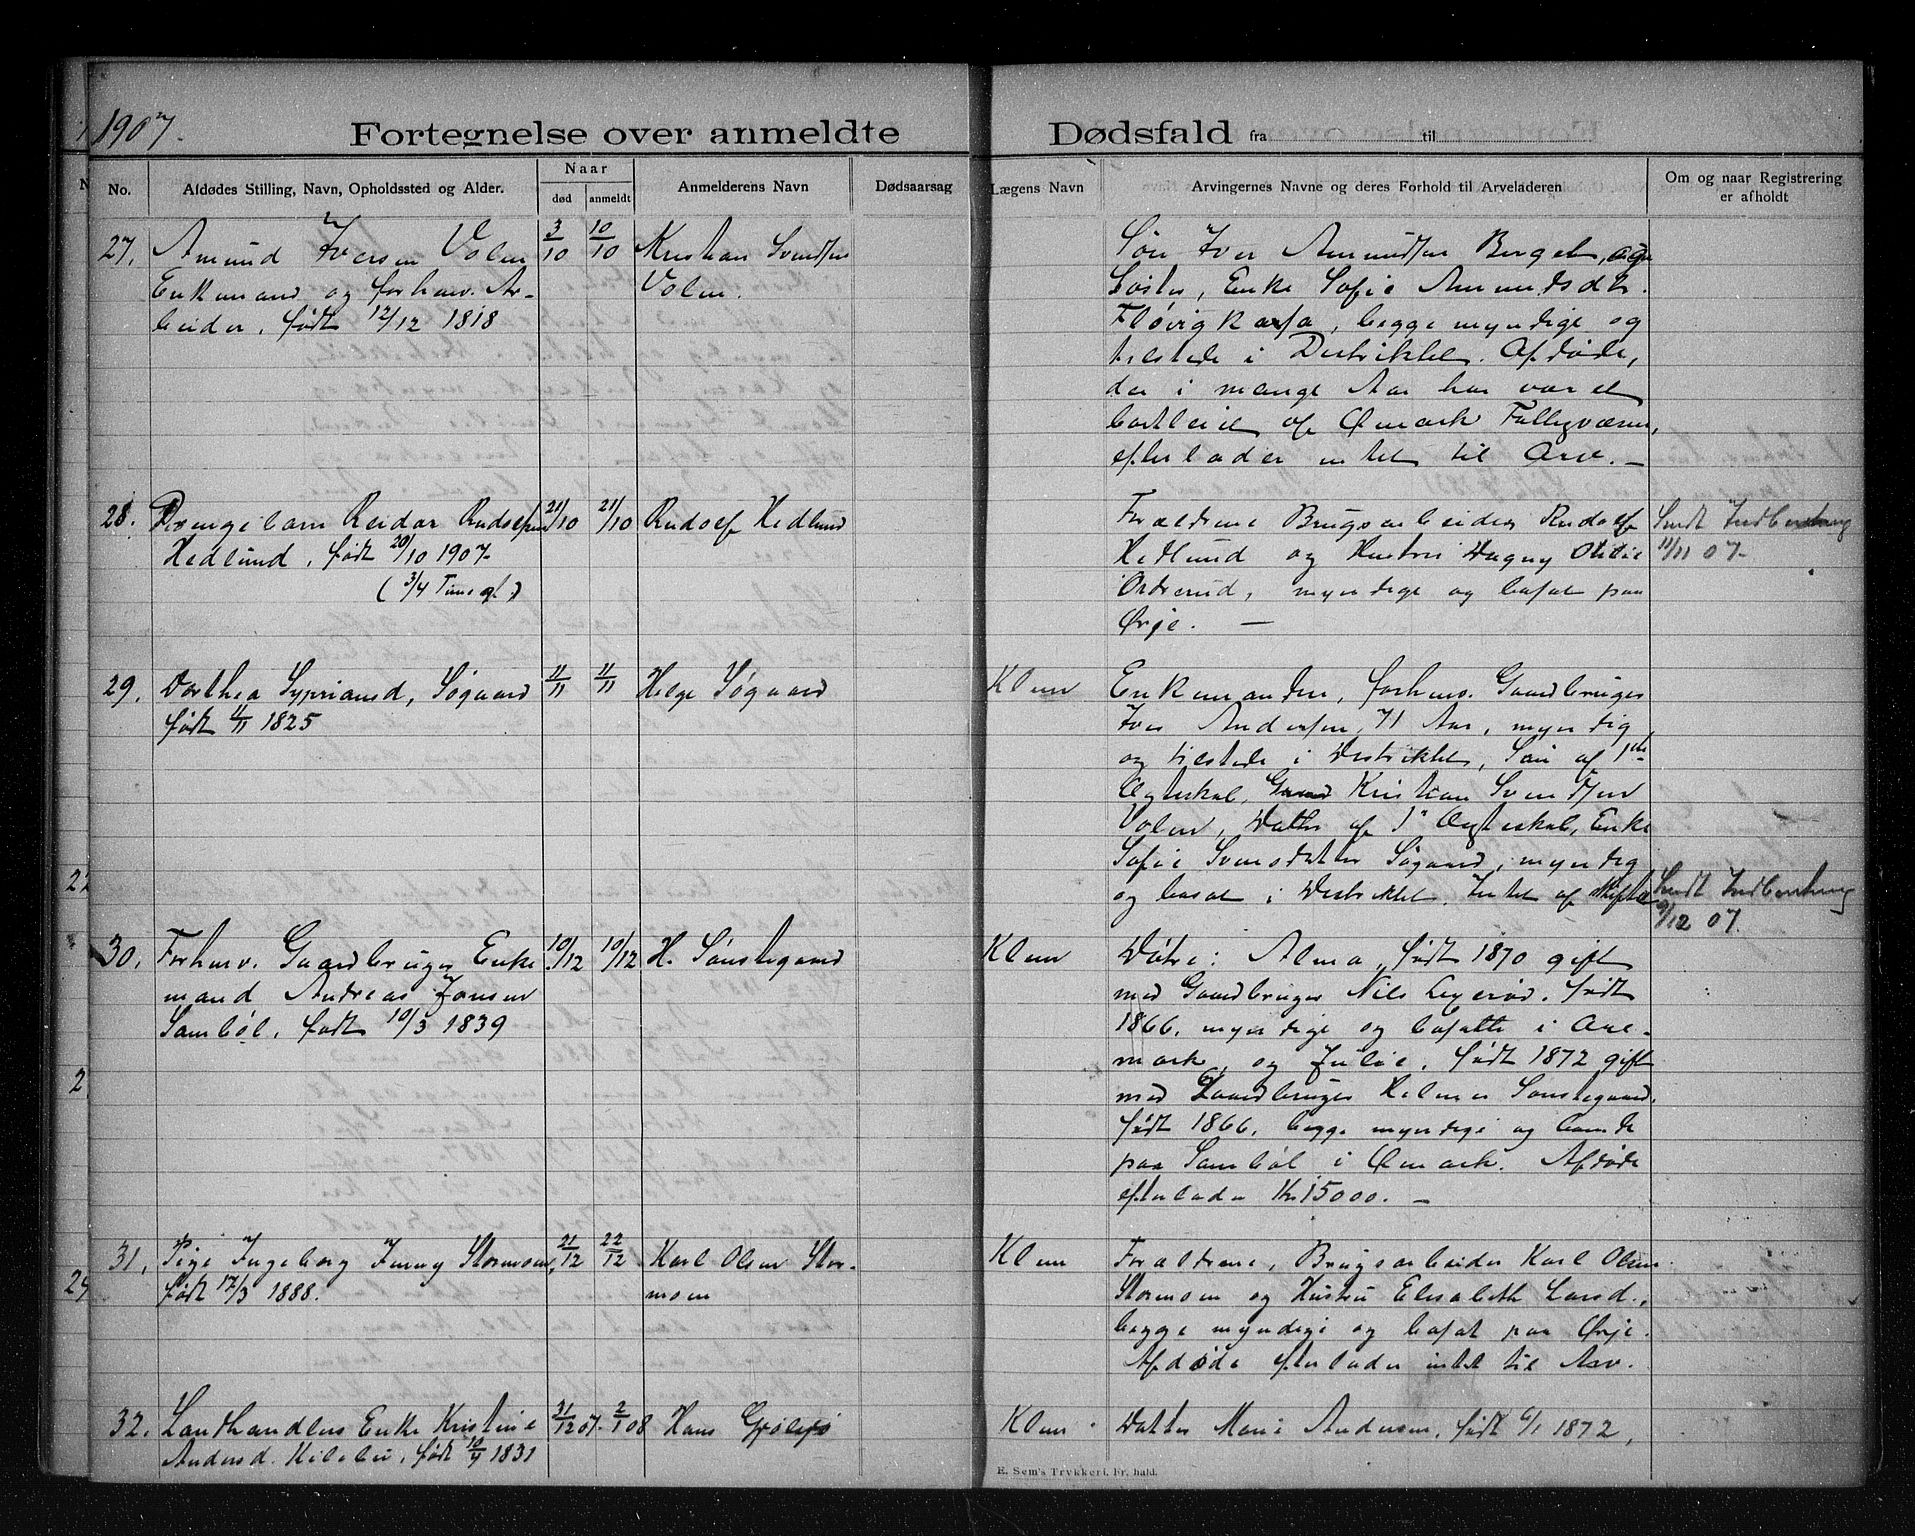 1907.
Fortegnelse over anmeldte Dødsfald fra til
No. Afdødes Stilling, Navn, Opholdssted og Alder. Naar død anmeldt Anmelderens Navn Dødsaarsag Lægens Navn Arvingernes Navne og deres Forhold til Arveladeren Om og naar Registrering er afholdt
27. Amund Iversen Volen 3/10 10/10 Kristian Svendsen
Enkemand og forhenv. Ar- Volen.
beider, født 12/12 1818
Søn Iver Amundsen Berget,
Søster, Enke Sofie Amundsdtr.
Fløvigkarsa, begge myndige og
tilstede i Distriktet. Afdøde,
der i mange Aar har været
bortleiet af Ømark Fattigvæsen,
efterlader intet til Arv. —
28. Drengebarn Reidar Rudolfsen 21/10 21/10 Rudolf Hedlund
Hedlund, født 20/10 1907
(3/4 Time gl.)
Forældrene Brugsarbeider Rudolf
Hedlund og Hustru Dagny Otilie
Ordrerud, myndige og bosat paa
Ørje. —
Sendt Indberetning
11/11 07.
29. Dorthea Sypriansd, Søgaard 11/11 11/11 Helge Søgaard Klem
født 11/11 1825
Enkemanden, forhenv. Gaardbruger
Iver Andersen, 71 Aar, myndig
og tilstede i Distriktet, Søn af 1ste
Ægteskab, Gaard Kristian Svendsen
Volen, Datter af 1" Ægteskab, Enke
Sofie Svensdatter Søgaard, myndig
og bosat i Distriktet. Intet af Skifte
Sendt Indberetning
9/12 07.
30. Forhenv. Gaardbruger Enke 10/12 10/12 H. Sønstegaard Klem
mand Andreas Jonsen
Sambøl, født 10/3 1839
Døtre: Alma, født 1870 gift
med Gaardbruger Nils Lexerød, født
1866, myndige og bosatte i Are-
mark, og Julie, født 1872 gift
med Gaardbruger Helmer Sønstegaard,
født 1866, begge myndige og boende
paa Sambøl i Ømark. Afdøde
efterlader Kr 15000. —
31. Pige Ingeborg Jenny Stormoen, 21/12 22/12 Karl Olsen Stor- Klem
født 17/3 1888. moen
Forældrene, Brugsarbeider Karl Olsen
Stormoen og Hustru Elisabeth Larsd.,
begge myndige og bosat paa Ørje.
Afdøde efterlader intet til Arv.
32. Landhandlers Enke Kristine 31/12 07. 2/1 08 Hans Grølsjø Klem
Andersd. Hilebu, født 10/4 1831
Datter Marie Andersen, født 6/1 1872,
E. Sem's Trykkeri, Fr. hald.